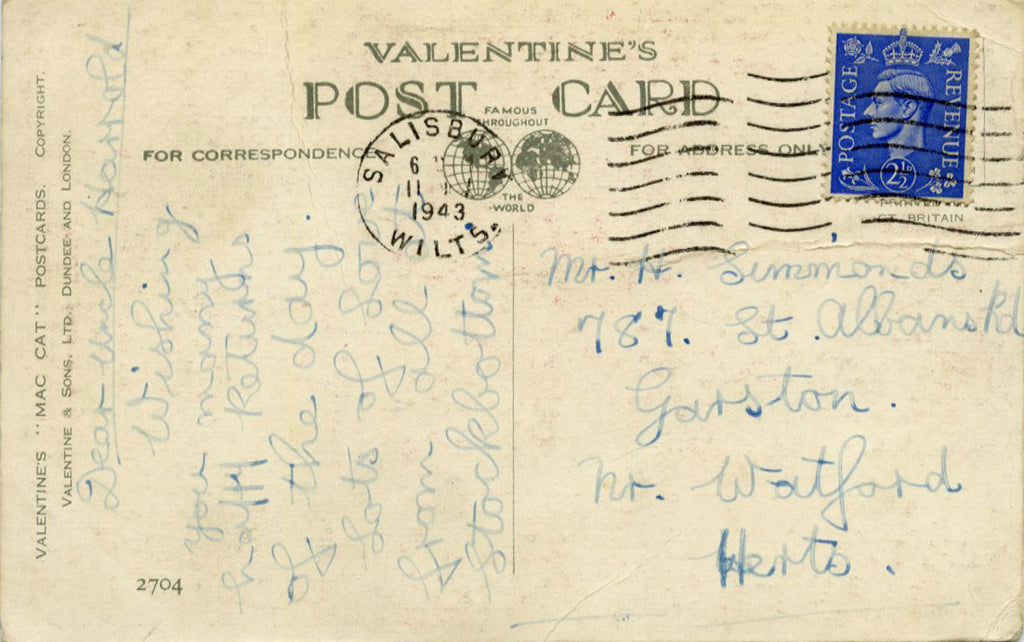 VALENTINE'S
POST CARD
FAMOUS
THROUGHOUT
THE
WORLD
FOR CORRESPONDENCE
FOR ADDRESS ONLY
SALISBURY
6
11
1943
WILTS.
POSTAGE
REVENUE
2½
PRINTED
GT. BRITAIN
VALENTINE'S "MAC CAT" POSTCARDS. COPYRIGHT.
VALENTINE & SONS, LTD., DUNDEE AND LONDON.
Dear Uncle Harrold
Wishing
you many
happy Returns
of the day.
Lots of Love
from all at
Stockbottom
Mr. H. Simmonds
787. St. Albans Rd
Garston.
Nr. Watford
Herts.
2704